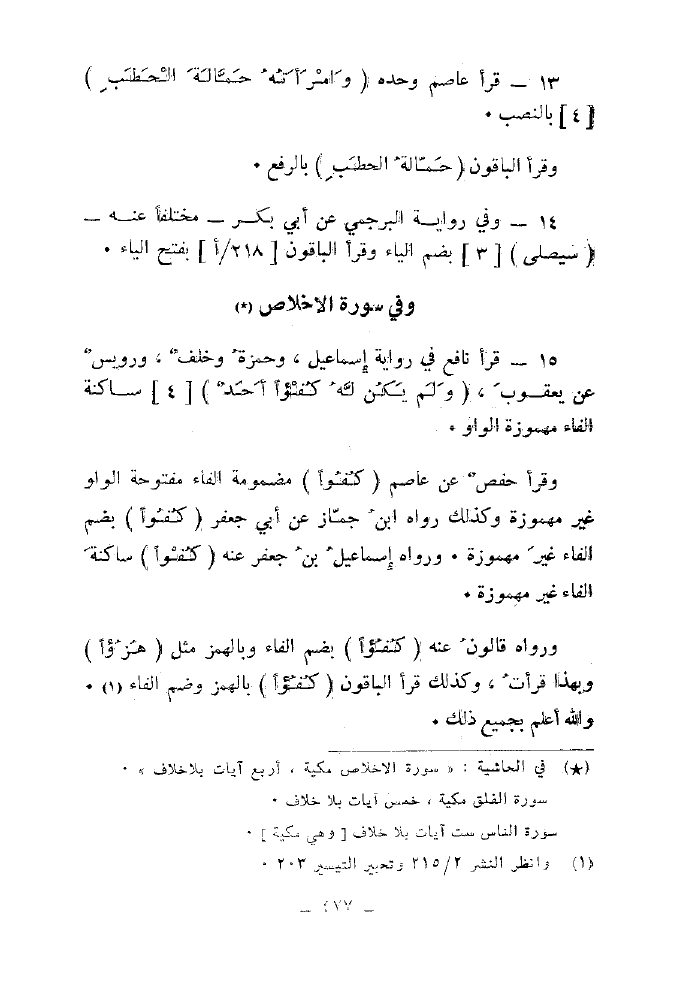 ١٣ ــ قرأ عاصم وحده ( وَامْرَأَتُهُ حَمَّالَةَ الْحَطَبِ )
[ ٤ ] بالنصب ٠
وقرأ الباقون ( حَمّالةُ الحطَبِ ) بالرفع ٠
١٤ ــ وفي روايــة البرجمي عن أبي بكـر ــ مختلفاً عنــه ــ
( سَيصلى ) [ ٣ ] بضم الياء وقرأ الباقون [ ٢١٨/أ ] بفتح الياء ٠
وفي سورة الاخلاص (*)
١٥ ــ قرأ نافع في رواية إسماعيل ، وحمزةُ وخلفٌ ، ورويسٌ
عن يعقــوبَ ، ( وَلَم يَكُن لَهُ كُفْؤاً أَحَدٌ ) [ ٤ ] ســاكنة
الفاء مهموزة الواو ٠
وقرأ حفصٌ عن عاصم ( كُفُواً ) مضمومة الفاء مفتوحة الواو
غير مهموزة وكذلك رواه ابنُ جمّاز عن أبي جعفر ( كُفُواً ) بضم
الفاء غيرَ مهموزة ٠ ورواه إسماعيلُ بنُ جعفر عنه ( كُفْواً ) ساكنةَ
الفاء غير مهموزة ٠
ورواه قالونُ عنه ( كُفُؤاً ) بضم الفاء وبالهمز مثل ( هُزُؤاً )
وبهذا قرأتُ ، وكذلك قرأ الباقون ( كُفُؤاً ) بالهمز وضم الفاء (١) ٠
والله أعلم بجميع ذلك ٠
(★) في الحاشية : « سورة الاخلاص مكية ، أربع آيات بلاخلاف » ٠
سورة الفلق مكية ، خمس آيات بلا خلاف ٠
سورة الناس ست آيات بلا خلاف [ وهي مكية ] ٠
(١) وانظر النشر ٢١٥/٢ وتحبير التيسير ٢٠٣ ٠
ــ ٤٧٧ ــ